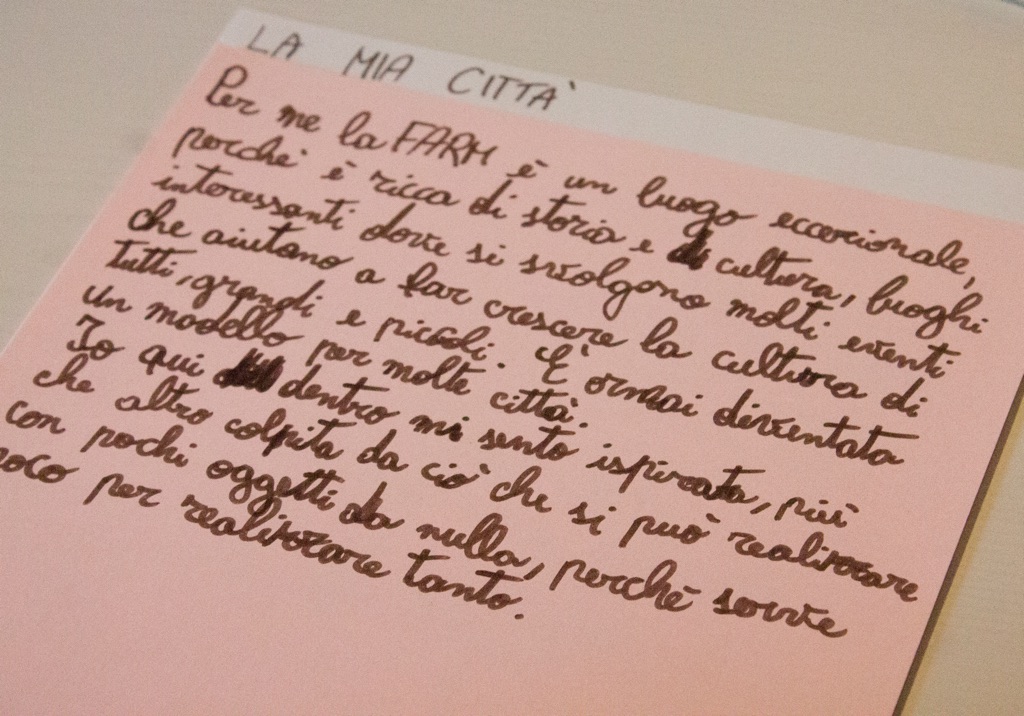 LA MIA CITTÀ
Per me la FARM è un luogo eccezionale,
perchè è ricca di storia e cultura, luoghi
interessanti dove si svolgono molti eventi
che aiutano a far crescere la cultura di
tutti, grandi e piccoli. E' ormai diventata
un modello per molte città.
Io qui dentro mi sento ispirata, più
che altro colpita da ciò che si può realizzare
con pochi oggetti da nulla, perchè serve
poco per realizzare tanto.